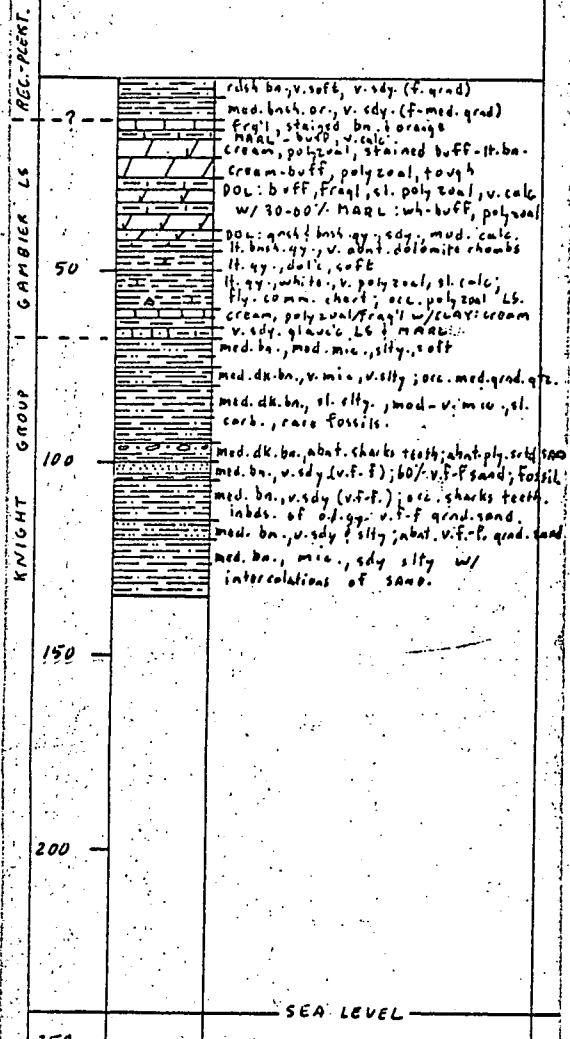 REC.-PLEKT.
?
GAMBIER LS
KNIGHT GROUP
50
100
150
200
250
rdsh bn., v.soft, v.sdy. (f. grnd)
med. bnsh. or., v. sdy. (f-med. grnd)
frq'l, stained bn. & orange
MARL - buff, v. calc.
cream, polyzoal, stained buff-lt. bn.
cream-buff, polyzoal, tough
DOL: buff, fragl, sl. polyzoal, v. calc
W/ 30-60% MARL: wh-buff, polyzoal
DOL: gnsh & bnsh gy., sdy., mod. calc.
lt. bnsh. gy., v. abnt. dolomite rhombs
lt. gy., dol'c, soft
lt. gy., white, v. polyzoal, sl. calc;
fly. comm. chert; occ. polyzoal LS.
cream, polyzoal/frag'l w/CLAY: cream
v. sdy. glauc'c LS & MARL
med. bn., mod. mic., slty., soft
med. dk. bn., v. mic, v. slty; occ. med. grnd. qtz.
med. dk. bn., sl. slty., mod-v. mic., sl.
carb., rare fossils.
med. dk. bn., abnt. sharks teeth; abnt. ply. srtd SAND
med. bn., v. sdy (v.f-f); 60% v.f-f sand; fossil
med. bn., v. sdy (v.f-f.); occ. sharks teeth.
inbds. of o.d.gy. v.f-f grnd. sand.
med. bn., v. sdy & slty; abnt. v.f.-f. grnd. sand
med. bn., mic., sdy slty w/
intercolations of SAND.
SEA LEVEL